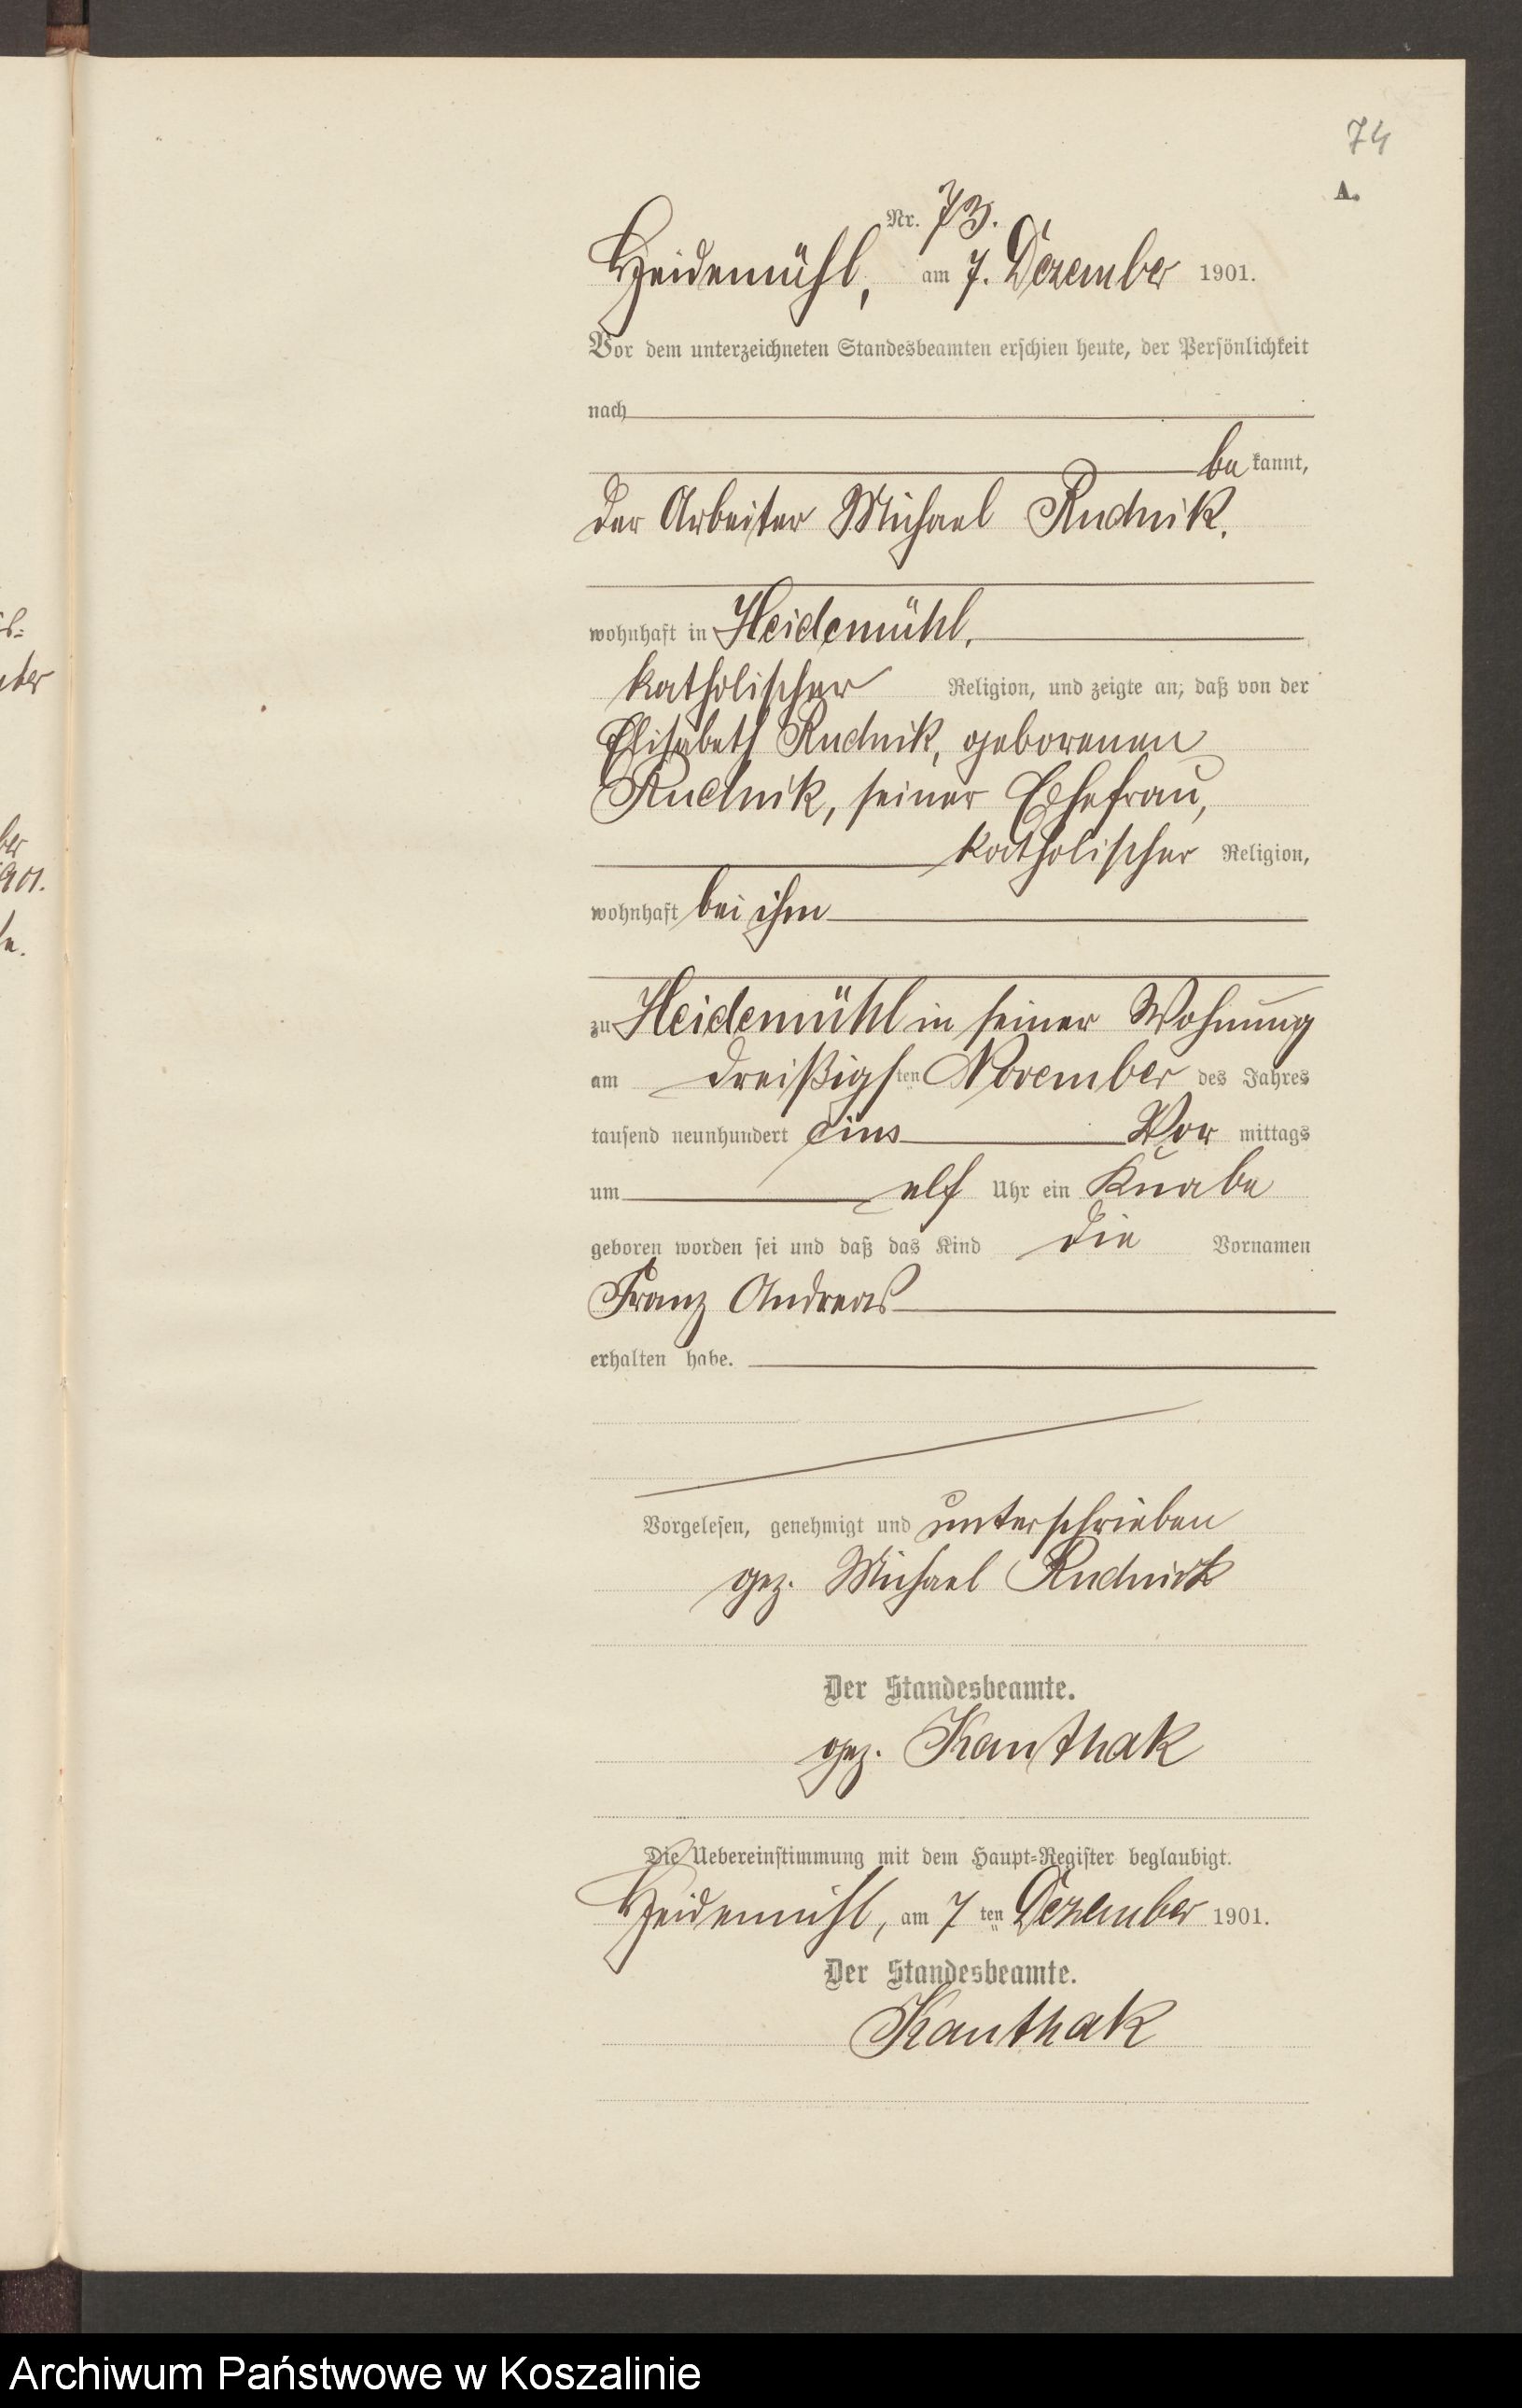 74
A.
Nr. 73.
Heidemühl, am 7. Dezember 1901.
Vor dem unterzeichneten Standesbeamten erschien heute, der Persönlichkeit
nach
be kannt,
der Arbeiter Michael Rudnik,
wohnhaft in Heidemühl,
katholischer Religion, und zeigte an, daß von der
Elisabeth Rudnik, geborenen
Rudnik, seiner Ehefrau,
katholischer Religion,
wohnhaft bei ihm
zu Heidemühl in seiner Wohnung
am dreißigsten November des Jahres
tausend neunhundert eins Vor mittags
um elf Uhr ein Knabe
geboren worden sei und daß das Kind die Vornamen
Franz Andreas
erhalten habe.
Vorgelesen, genehmigt und unterschrieben
gez. Michael Rudnick
Der Standesbeamte.
gez. Kanthak
Die Uebereinstimmung mit dem Haupt-Register beglaubigt.
Heidemühl, am 7 ten Dezember 1901.
Der Standesbeamte.
Kanthak
Archiwum Państwowe w Koszalinie